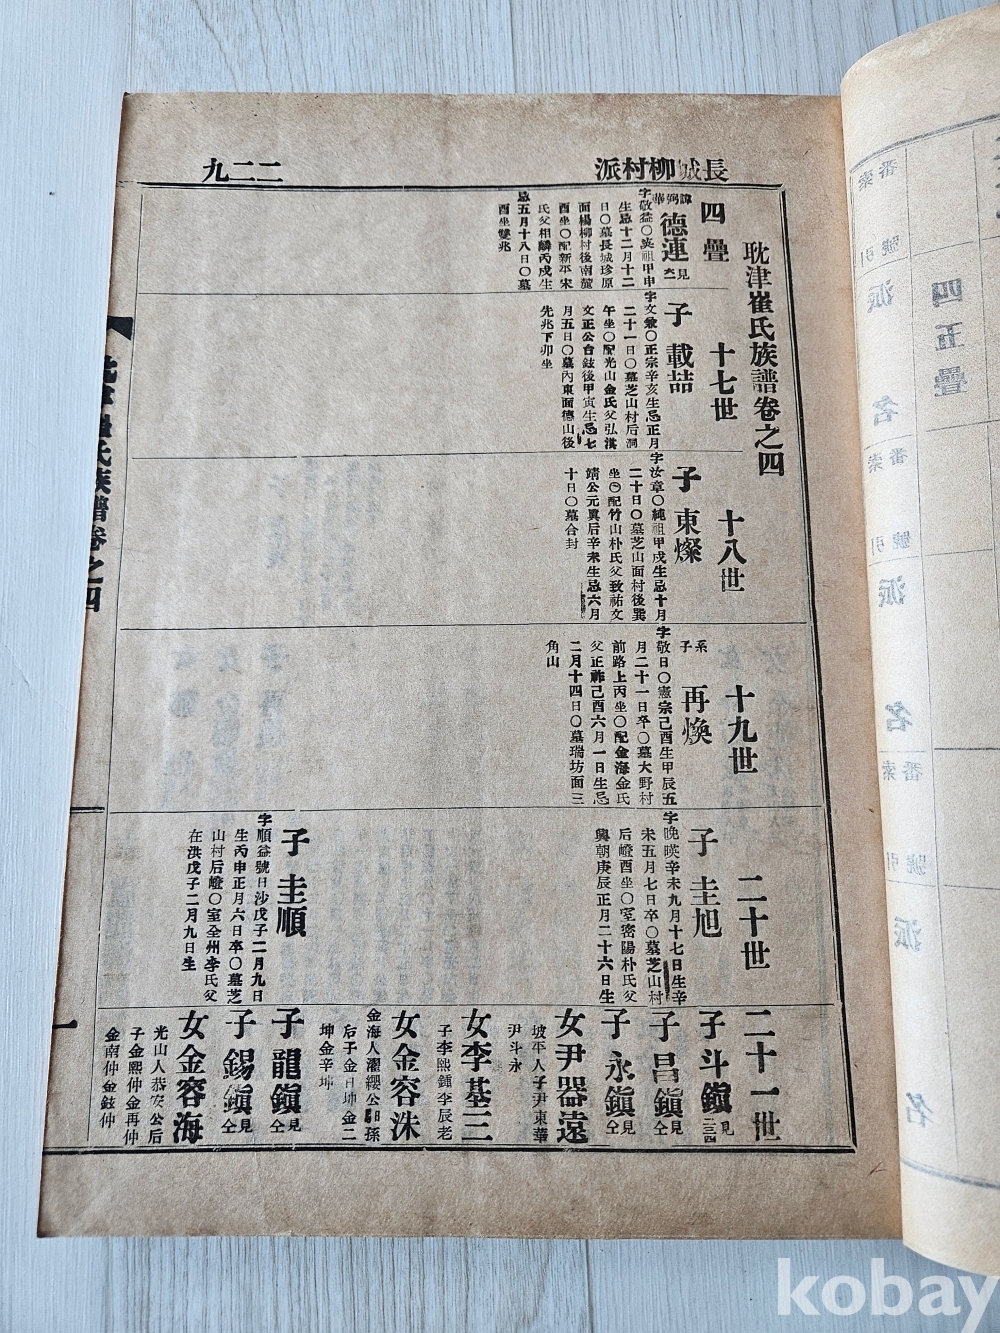 長城柳村派
二二九
耽津崔氏族譜卷之四
四疊
諱弼華
德連
見六一
字敬益〇英祖甲申
生忌十二月十二
日〇墓長城珍原
面楊柳村後南麓
酉坐〇配新平宋
氏父相麟丙戌生
忌五月十八日〇墓
酉坐雙兆
十七世
子載喆
字文兼〇正宗辛亥生忌正月
二十一日〇墓芝山村后洞
午坐〇配光山金氏父弘淇
文正公台鉉後甲寅生忌七
月五日〇墓內東面德山後
先兆下卯坐
十八世
子東燦
字汝章〇純祖甲戌生忌十月
二十日〇墓芝山面村後巽
坐〇配竹山朴氏父致祐文
靖公元巽后辛未生忌六月
十日〇墓合封
十九世
系子
再煥
字敬日〇憲宗己酉生甲辰五
月二十一日卒〇墓大野村
前路上丙坐〇配金海金氏
父正祚己酉六月一日生忌
二月十四日〇墓瑞坊面三
角山
二十世
子圭旭
字晚暎辛未九月十七日生辛
未五月七日卒〇墓芝山村
后嶝酉坐〇室密陽朴氏父
興朝庚辰正月二十六日生
子圭順
字順益號日沙戊子二月九日
生丙申正月六日卒〇墓芝
山村后嶝〇室全州李氏父
在洪戊子二月九日生
二十一世
子斗鎭
見二三四
子昌鎭
見仝
子永鎭
見仝
女尹器遠
坡平人子尹東華
尹斗永
女李基三
子李熙鍾李辰老
女金容洙
金海人濯纓公馹孫
后子金日坤金二
坤金辛坤
子龍鎭
見仝
子錫鎭
見仝
女金容海
光山人恭安公后
子金熙仲金再仲
金南仲金鉉仲
氏族譜卷之四
一
四五疊
番號
索引
派
名
番號
索引
派
名
番號
索引
派
名
kobay